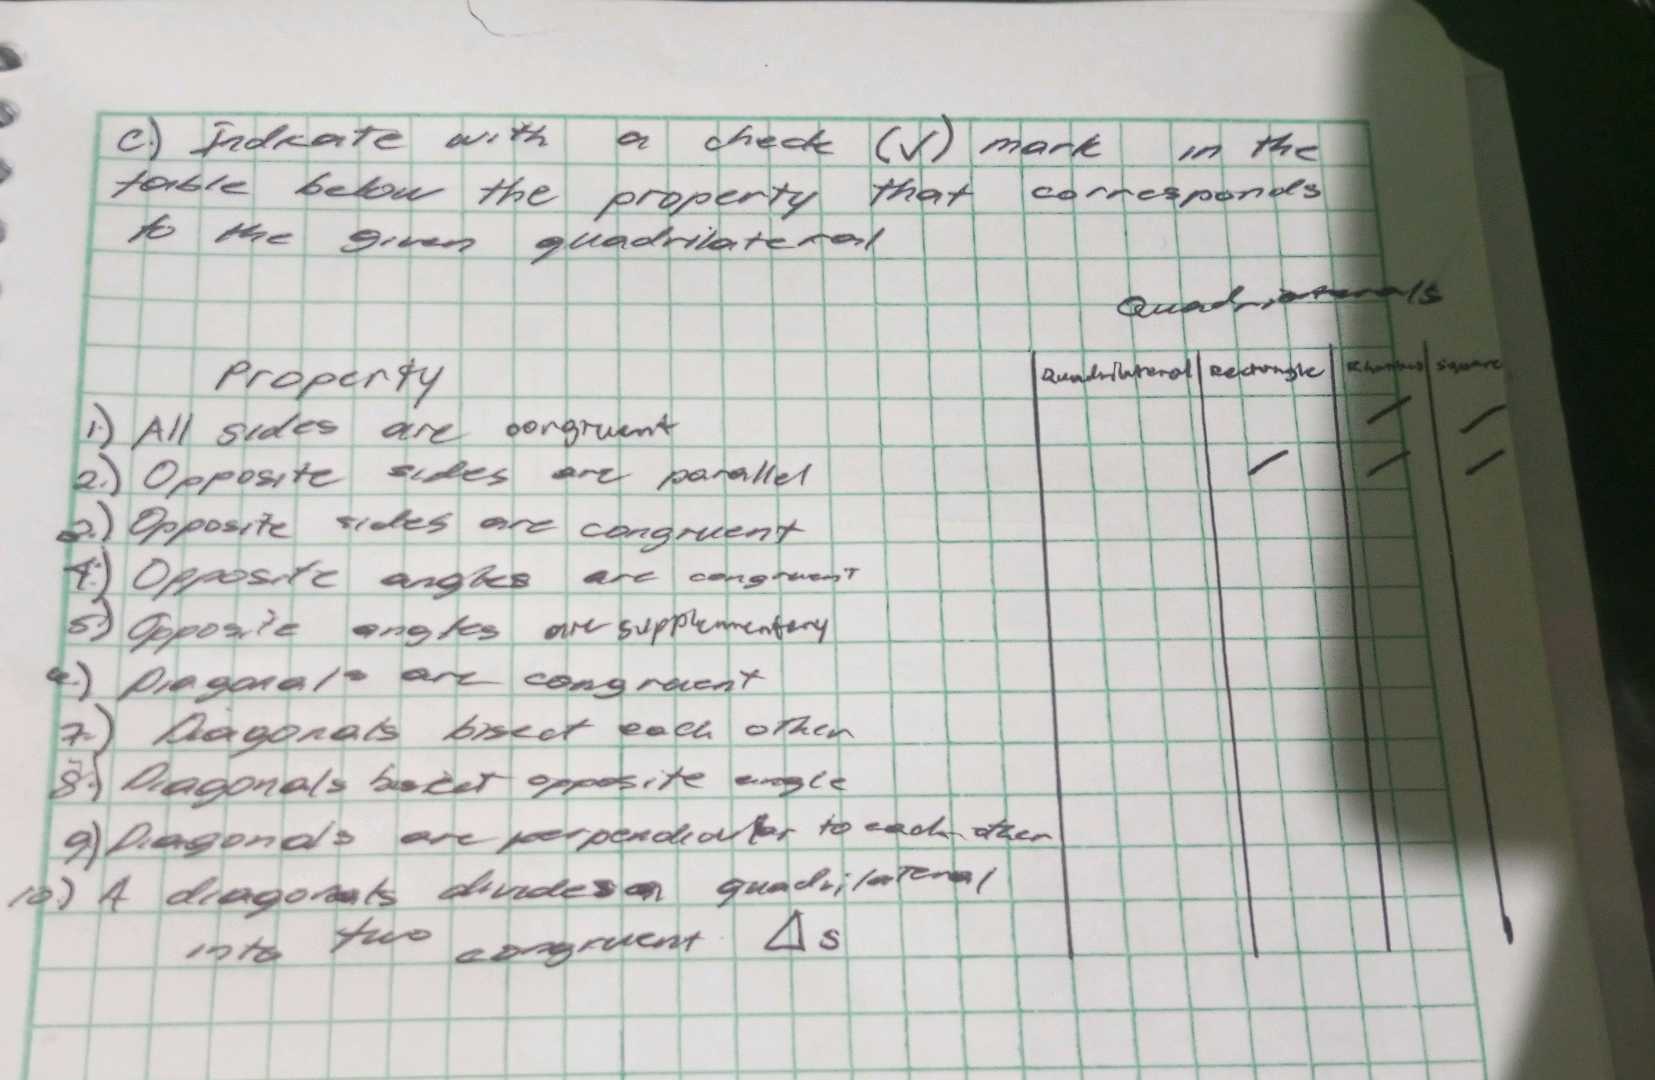 c.) Indicate with a check (√) mark in the
table below the property that corresponds
to the given quadrilateral
Quadrilaterals
Property Quadrilateral Rectangle Rhombus square
1.) All sides are congruent / /
2.) Opposite sides are parallel / / /
3.) Opposite sides are congruent
4.) Opposite angles are congruent
5.) Opposite angles are supplementary
6.) Diagonals are congruent
7.) Diagonals bisect each other
8.) Diagonals bisect opposite angle
9) Diagonals are perpendicular to each other
10.) A diagonals divides a quadrilateral
into two congruent Δs